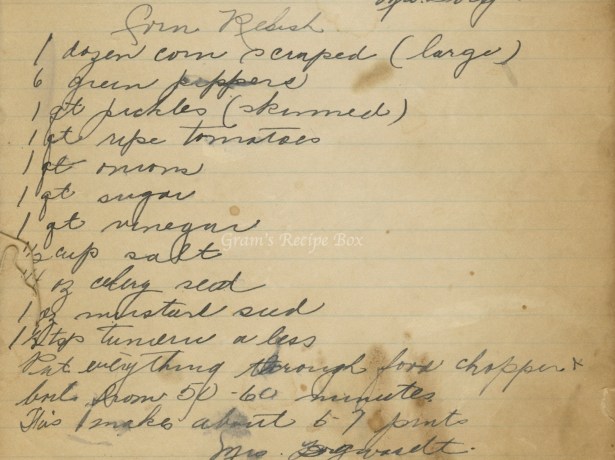 Corn Relish
1 dozen corn scraped (large)
6 green peppers
1 qt pickles (skinned)
1 qt ripe tomatoes
1 qt onions
1 qt sugar
1 qt vinegar
Gram's Recipe Box
1/2 cup salt
oz celery seed
1 oz mustard seed
tsp tumeric a less
Put everything through food chopper x
boil from 50-60 minutes
This makes about 6-7 pints
Mrs.